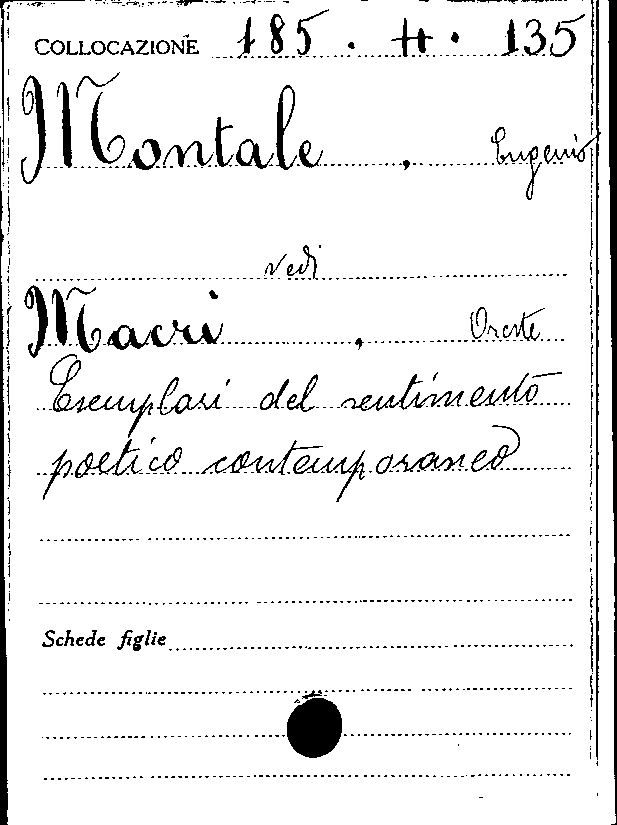 COLLOCAZIONE 185 . H . 135
Montale , Eugenio
vedi
Macrì , Oreste
Esemplari del sentimento
poetico contemporaneo
Schede figlie